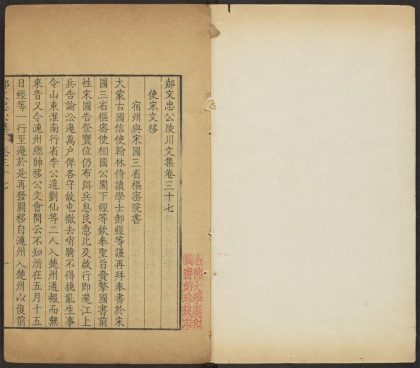 郝文忠公陵川文集卷三十七
使宋文移
宿州與宋國三省樞密院書
大蒙古國信使翰林侍讀學士郝經等謹再拜奉書於宋
國三省樞密使相國公閣下經等欽奉聖旨賫幣國書前
徃宋國告登寶位仍布弭兵息民意比及啟行即遣江上
兵告諭沿邊萬户俾各守故屯撤去哨騎不得擾亂生事
令山東淮南行省李公遣劉仙等二人入楚州通報而無
來音又令漣州總帥移公文會問云不知所在五月十五
日經等一行至邊於是再發關移自漣州入楚州以復前